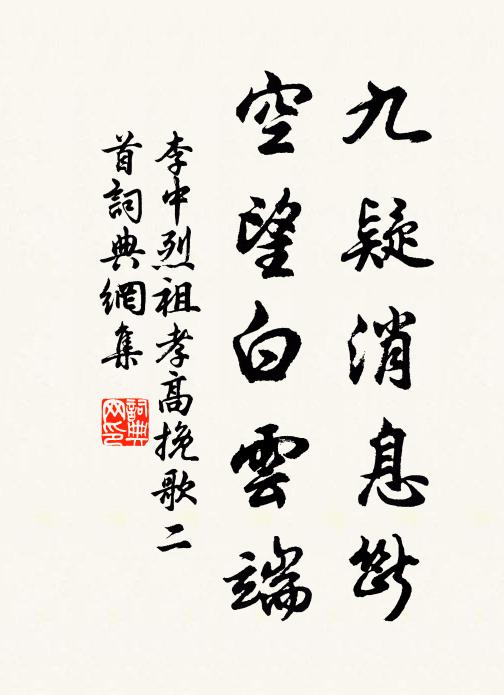 九疑消息斷
空望白雲端
李中烈祖孝高挽歌二
首詞典網集
詞典
网印